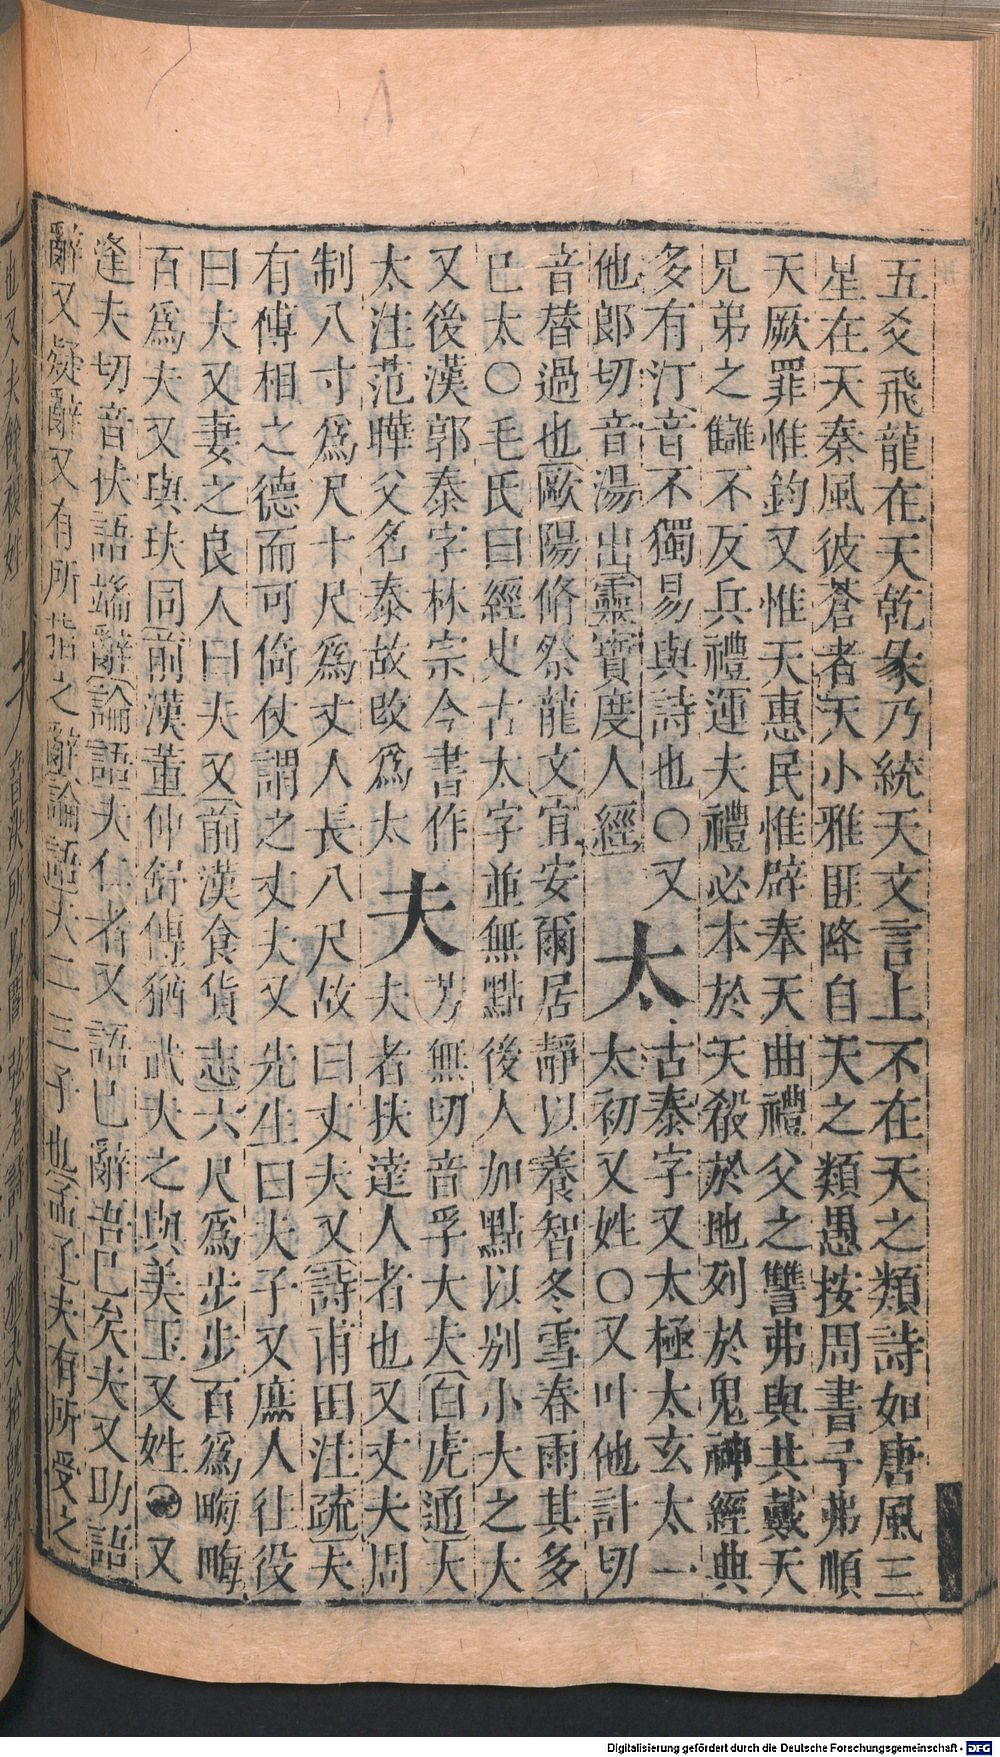 五爻飛龍在天乾彖乃統天文言上不在天之類詩如唐風三
星在天秦風彼蒼者天小雅匪降自天之類愚按周書于弗順
天厥罪惟鈞又惟天惠民惟辟奉天曲禮父之讐弗與共戴天
兄弟之讎不反兵禮運夫禮必本於天殽於地列於鬼神經典
多有汀音不獨易與詩也〇又太古泰字又太極太玄太一
他郎切音湯出靈寶度人經太初又姓〇又叶他計切
音替過也歐陽脩祭龍文宜安爾居靜以養智冬雪春雨其多
巳太〇毛氏曰經史古太字並無點後人加點以别小大之大
又後漢郭泰字林宗今書作芳無切音孚大夫白虎通大
太注范曄父名泰故改爲太夫夫者扶達人者也又丈夫周
制八寸爲尺十尺爲丈人長八尺故曰丈夫又詩甫田注疏夫
有傅相之德而可倚仗謂之丈夫又先生曰夫子又庶人在役
曰夫又妻之良人曰夫又前漢食貨志六尺爲步步百爲畮畮
百爲夫又與玞同前漢董仲舒傳猶武夫之與美玉又姓 又
逢夫切音扶語端辭論語夫仁者又語也辭吾巳矣夫又助語
辭又疑辭又有所指之辭論語夫二三子也孟子夫有所受之
Digitalisierung gefördert durch die Deutsche Forschungsgemeinschaft - DFG